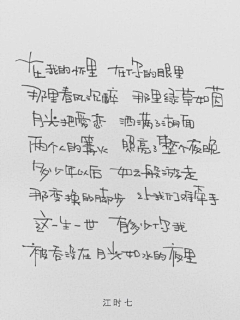 在我的怀里 在你的眼里
那里春风沉醉 那里绿草如茵
月光把爱恋 洒满了湖面
两个人的篝火 照亮了整个夜晚
多少年以后 如云般游走
那变换的脚步 让我们难牵手
这一生一世 有多少你我
被吞没在月光如水的夜里
江时七